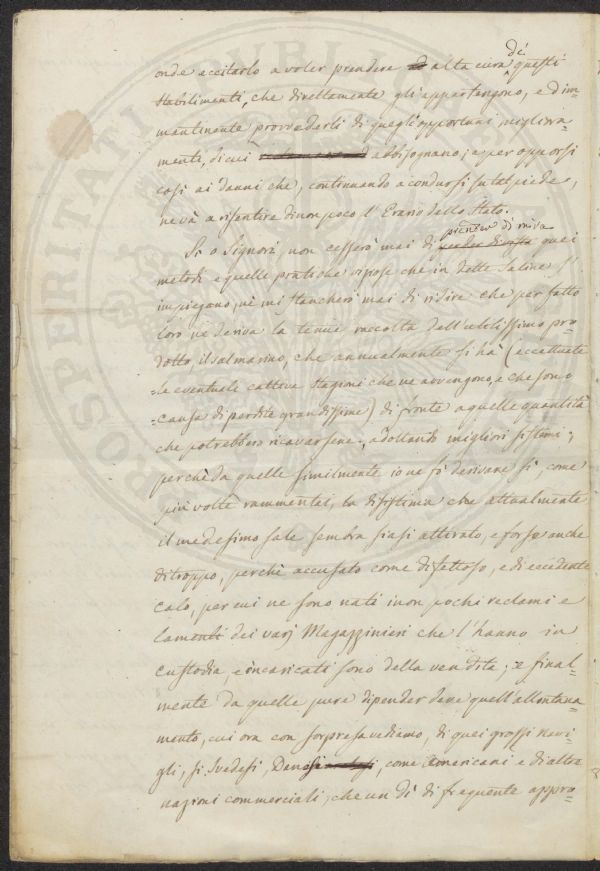 onde eccitarlo a voler prendere alta cura de questi
stabilimenti, che direttamente gli appartengono, ed im=
mantinente provvederli di quegli opportuni migliora=
menti, di cui abbisognano; e per opporsi
così ai danni che, continuando a condursi su tal piede,
ne và a risentire di non poco l'Erario dello Stato.
Si o Signori, non cesserò mai di prender di mira quei
metodi e quelle pratiche viziose che in dette Saline s'
impiegano, nè mi stancherò mai di ridire che per fatto
loro ne deriva la tenue raccolta dell'utilissimo pro=
dotto, il sal marino, che annualmente si hà (eccettuate
=le eventuali cattive stagioni che ne avvengono, e che sono
=causa di perdite grandissime) di fronte a quelle quantità
che potrebbero ricavarsene, adottando migliori sistemi;
perchè da quelle similmente io ne fò derivare si, come
più volte rammentai, la disistima che attualmente
il medesimo sale sembra siasi attirato, e forse anche
di troppo, perchè accusato come difettoso, e di eccedente
calo, per cui ne sono nati in non pochi reclami e
lamenti dei varj Magazzinieri che l'hanno in
custodia, e incaricati sono della vendita; e final=
mente da quelle pure dipender deve quell'allontana=
mento, cui ora con sorpresa vediamo, di quei grossi navi=
gli, si Svedesi, Danesi, come Americani e di altre
nazioni commerciali, che un dì di frequente appro=
PROSPERITATI PUBLICAE